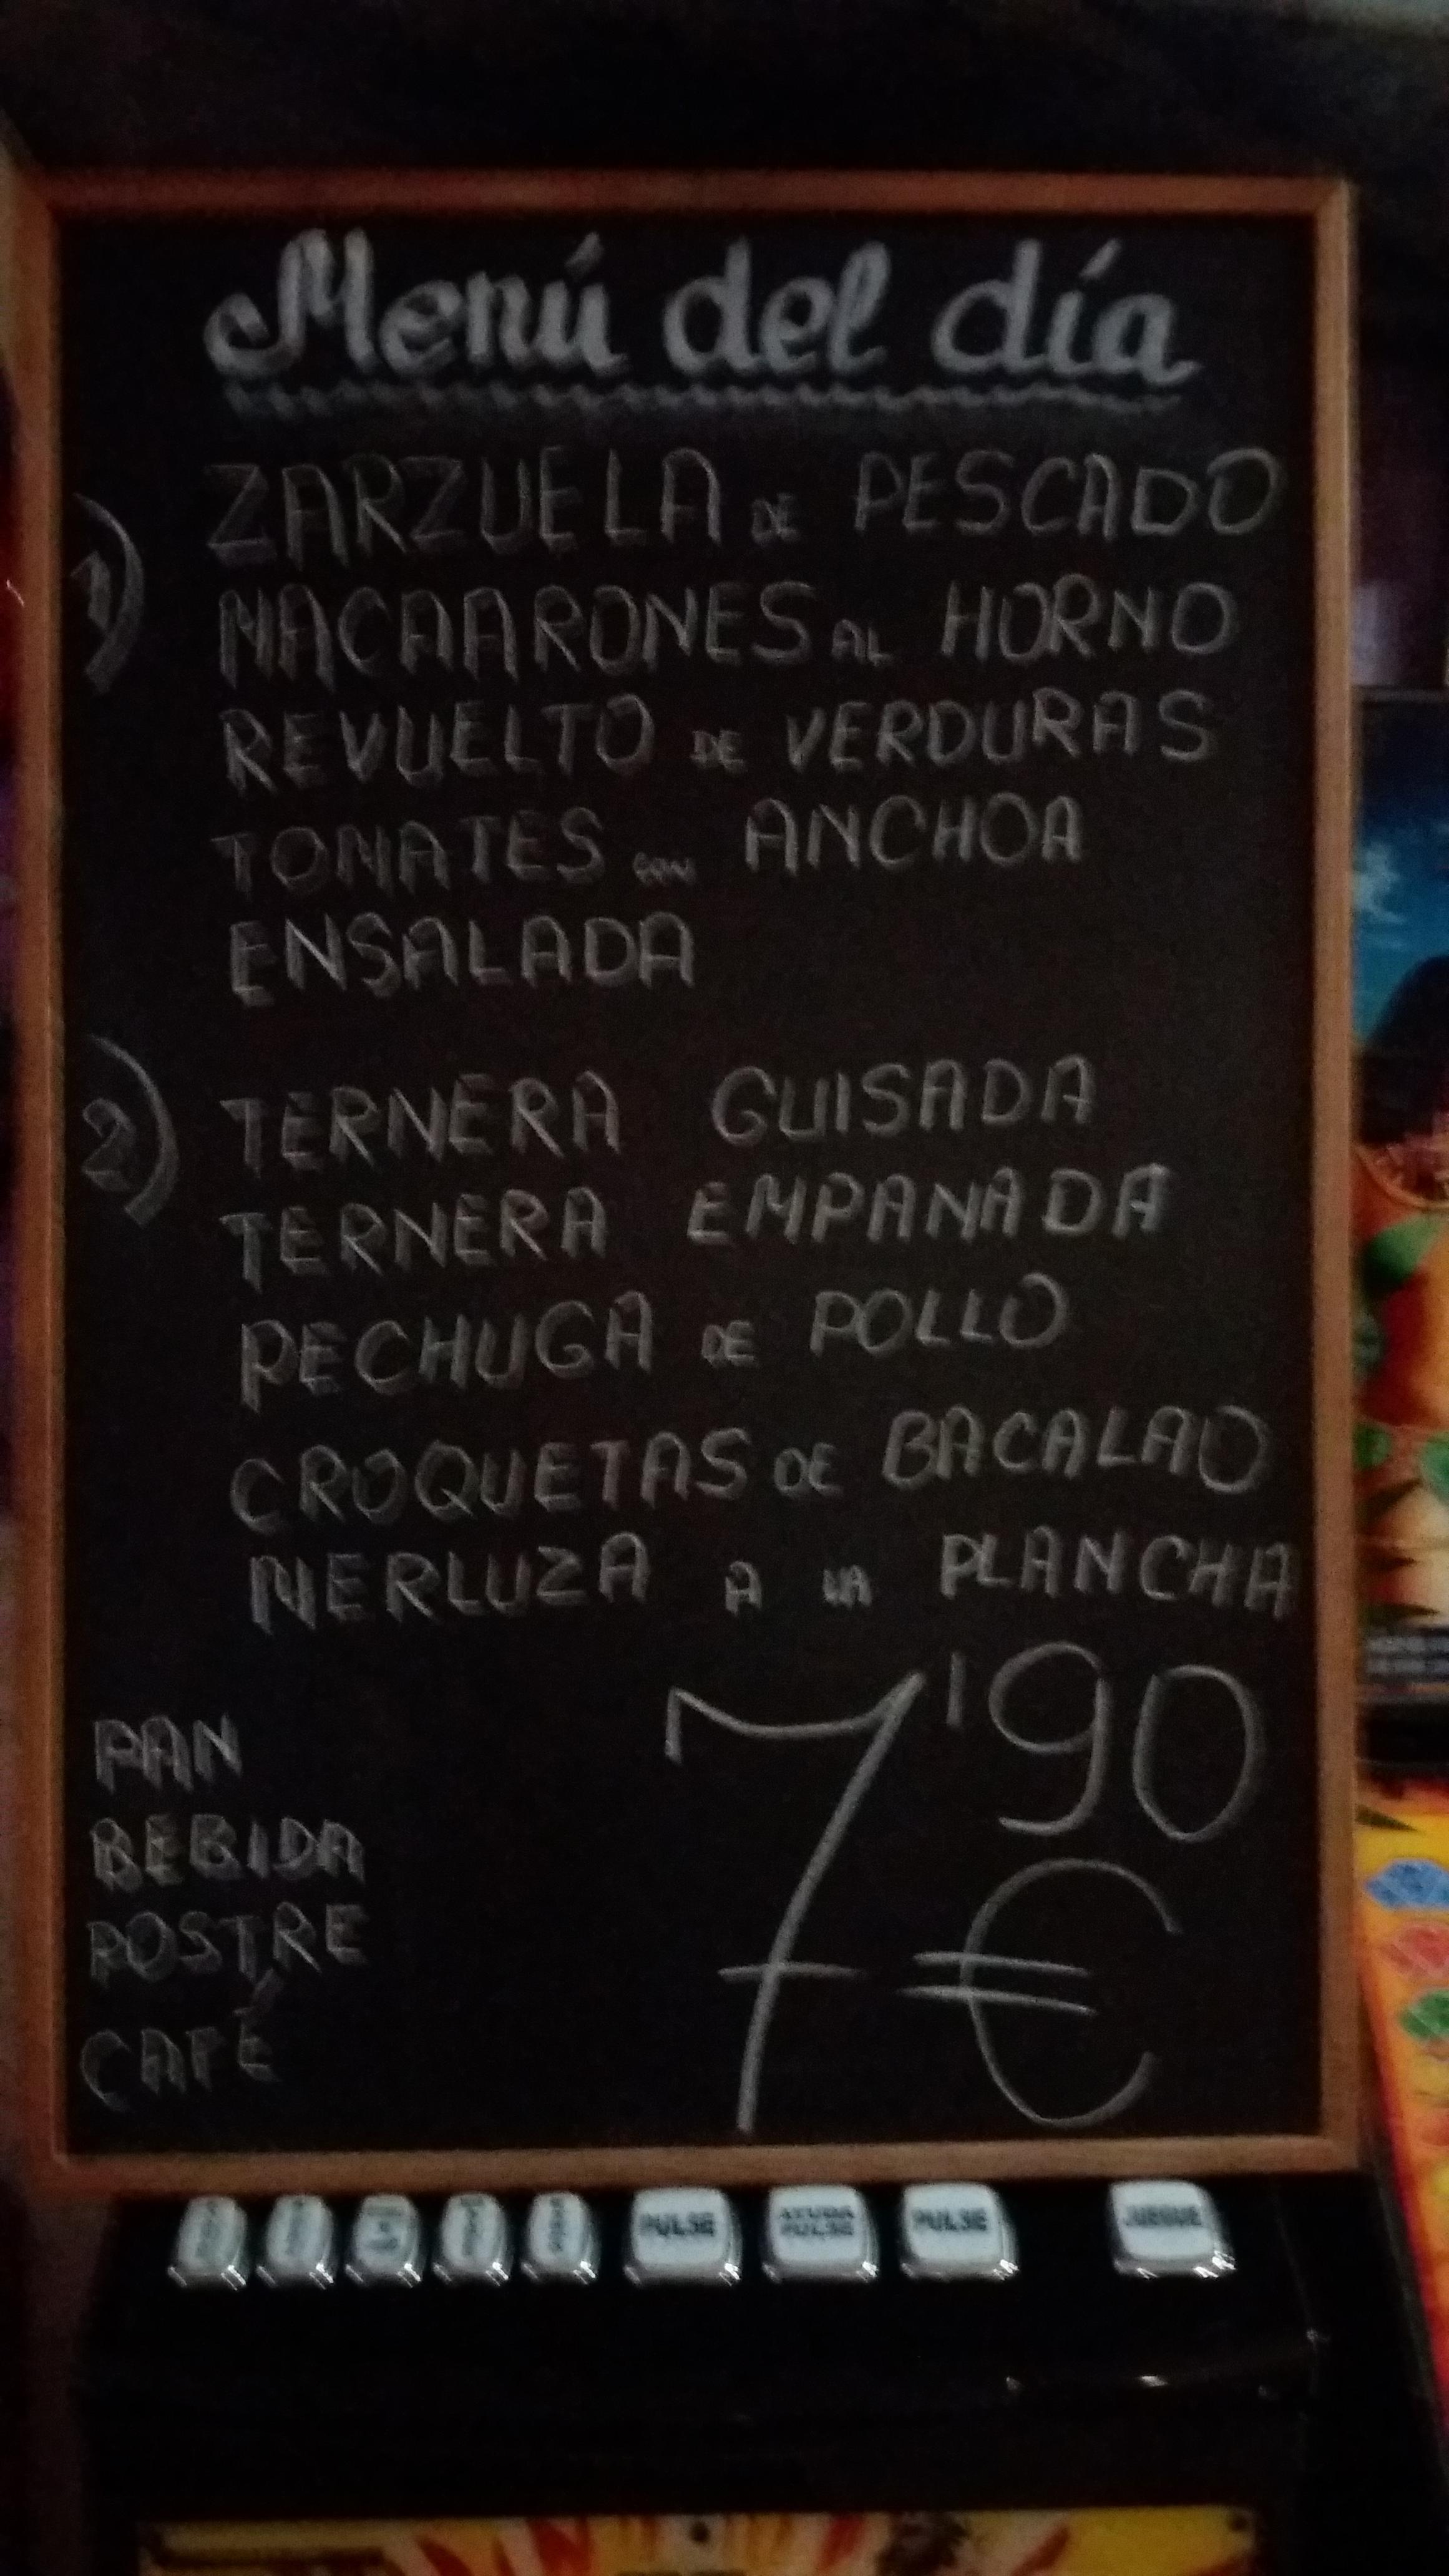 Menú del día
1)
ZARZUELA DE PESCADO
MACAARONES AL HORNO
REVUELTO DE VERDURAS
TOMATES CON ANCHOA
ENSALADA
2)
TERNERA GUISADA
TERNERA EMPANADA
PECHUGA DE POLLO
CROQUETAS DE BACALAO
MERLUZA A LA PLANCHA
7'90
€
PAN
BEBIDA
POSTRE
CAFÉ
PULSE
AYUDA
PULSE
PULSE
JUEGUE